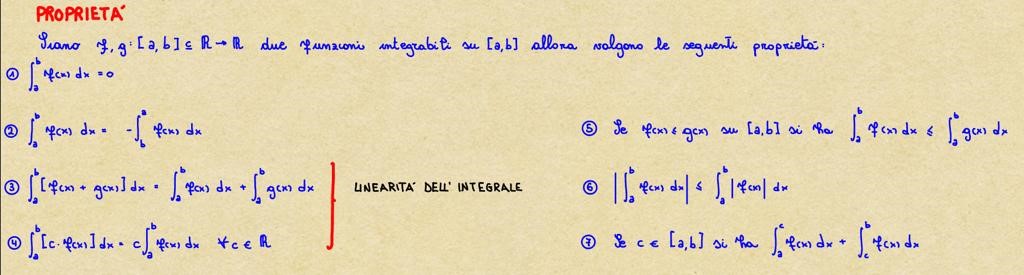 PROPRIETÀ
Siano f, g: [a, b] ⊆ ℝ → ℝ due funzioni integrabili su [a,b] allora valgono le seguenti proprietà:
① ∫_a^b f(x) dx = 0
② ∫_a^b f(x) dx = -∫_b^a f(x) dx
③ ∫_a^b [f(x) + g(x)] dx = ∫_a^b f(x) dx + ∫_a^b g(x) dx
④ ∫_a^b [c · f(x)] dx = c ∫_a^b f(x) dx ∀ c ∈ ℝ
LINEARITÀ DELL' INTEGRALE
⑤ Se f(x) ≤ g(x) su [a,b] si ha ∫_a^b f(x) dx ≤ ∫_a^b g(x) dx
⑥ |∫_a^b f(x) dx| ≤ ∫_a^b |f(x)| dx
⑦ Se c ∈ [a,b] si ha ∫_a^c f(x) dx + ∫_c^b f(x) dx